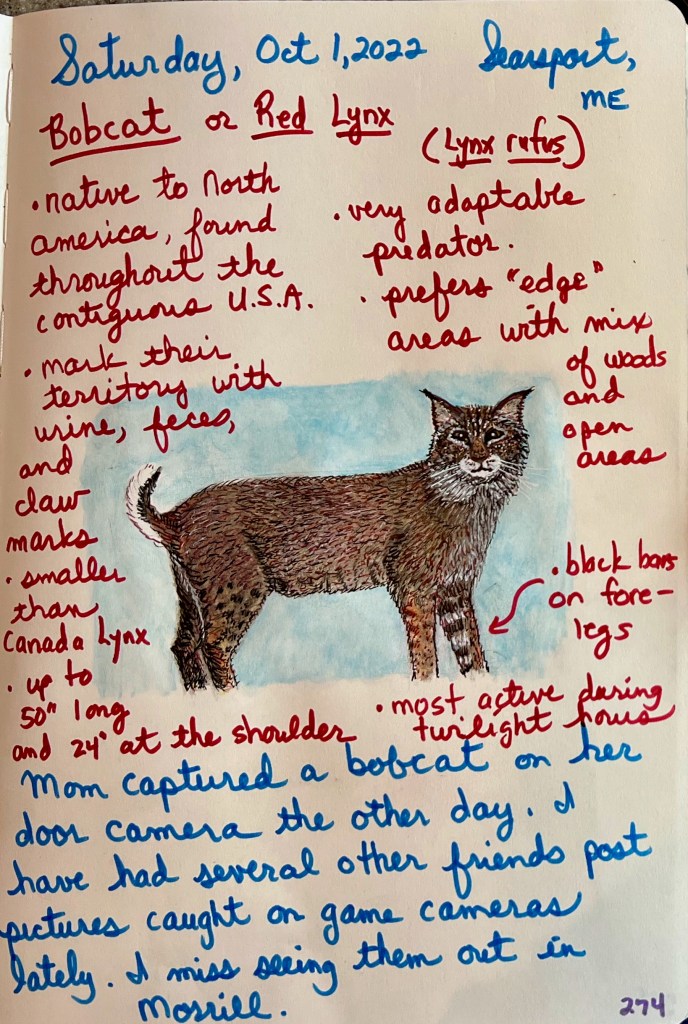 Saturday, Oct 1, 2022 Searsport,
ME
Bobcat or Red Lynx
(Lynx rufus)
• native to North
america, found
throughout the
contiguous U.S.A.
• mark their
territory with
urine, feces,
and
claw
marks
• smaller
than
Canada Lynx
• up to
50" long
and 24" at the shoulder
• very adaptable
predator.
• prefers "edge"
areas with mix
of woods
and
open
areas
• black bars
on fore-
legs
• most active during
twilight hours
Mom captured a bobcat on her
door camera the other day. I
have had several other friends post
pictures caught on game cameras
lately. I miss seeing them out in
Morrill.
274